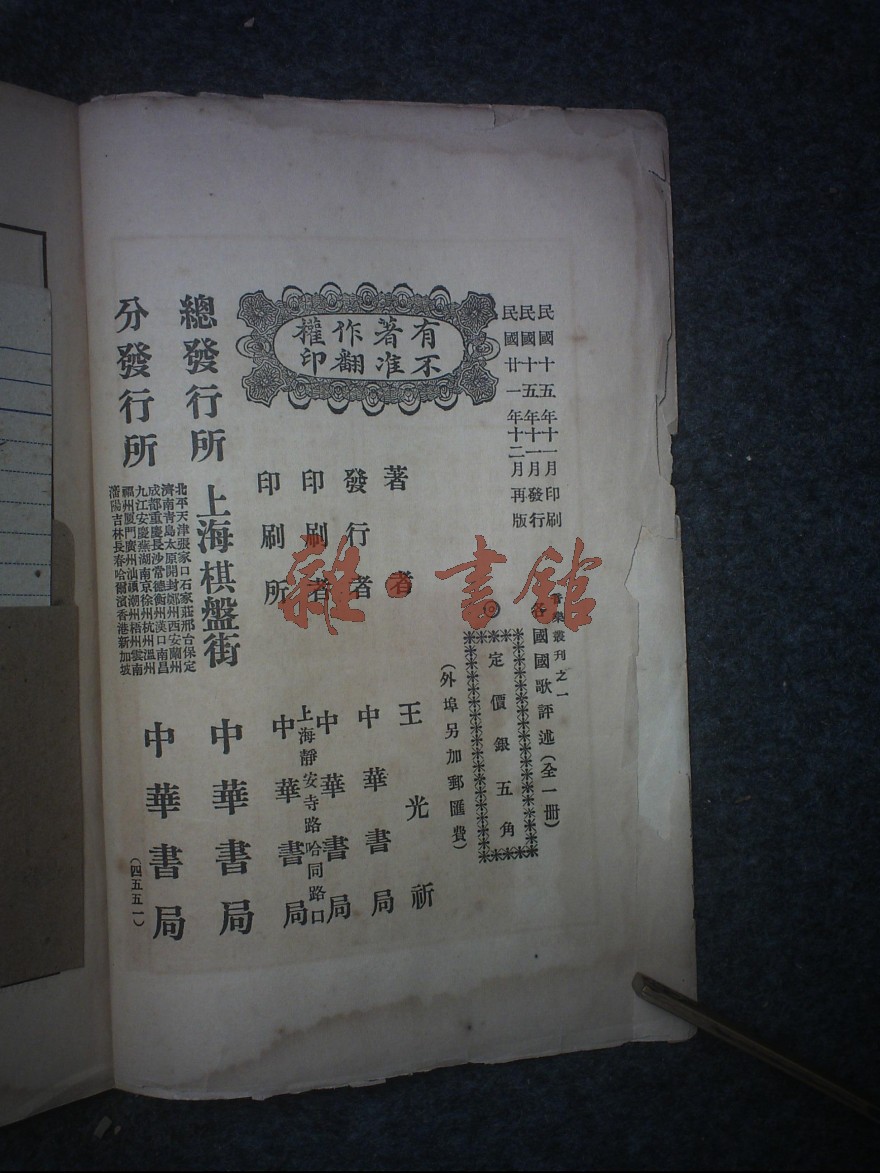 民國十五年十一月印刷
民國十五年十一月發行
民國廿一年十二月再版
音樂叢刊之一
各國國歌評述(全一冊)
定價銀五角
(外埠另加郵匯費)
有著作權
不准翻印
著者 王光祈
發行者 中華書局
印刷者 中華書局
上海靜安寺路哈同路口
印刷所 中華書局
總發行所 上海棋盤街 中華書局
分發行所
北平天津張家口石家莊邢台保定
濟南青島太原開封鄭州西安蘭州
成都重慶長沙常德衡州漢口南昌
九江安慶蕪湖南京徐州杭州溫州
福州厦門廣州汕頭潮州梧州雲南
瀋陽吉林長春哈爾濱香港新加坡
中華書局
(四五五一)
雜·書館